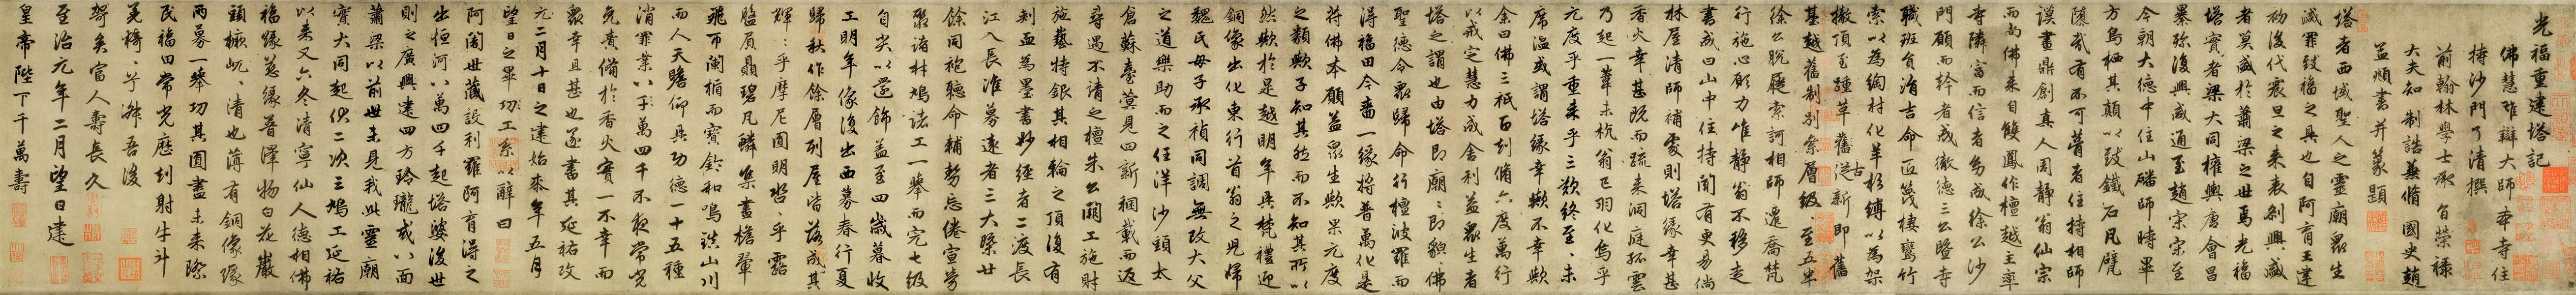 光福重建塔記
佛慧雄辯大師奉寺住
持沙門了清撰
前翰林學士承旨榮祿
大夫知制誥兼脩國史趙
孟頫書并篆題
塔者西域聖人之靈廟眾生
滅罪致福之具也自阿育王建
於後代震旦之来表創興盛
者莫盛於蕭梁之世焉光福
塔實者梁大同權輿唐會昌
暴殄復興咸通至趙宋宗至
今朝大德中住山磻師時畢
方鳥栖其顛以致鐵石凡甓
隳裂有不可葺者住持相師
謨畫鼎創真人周靜翁仙宗
而尚佛来自雙鳳作檀越主率
寺隣富而信者易成徐公沙
門願而幹者成徹德三公暨寺
職班負海吉命匠蔑棲鸞竹
索以為綯材化羊杉縛以為架
撤頂至踵革舊從新即舊
基越舊制別索層級至五半
徐公脫屣索訶相師遷喬梵
行施心願力唯靜翁不移走
書戒曰山中住持闃有更易倘
林屋清師補處則塔緣幸甚
香火幸甚既而疏来洞庭孤雲
乃起一葦未杭翁已羽化烏乎
元度乎重来乎三歎終至未
席温或謂塔緣幸歟不幸歟
余曰佛三祇百刦脩六度萬行
以戒定慧力成舍利益眾生者
塔之謂也由塔即廟廟即貌佛
聖德令眾歸命行檀波羅而
得福田今啬一緣将普萬化是
符佛本願益眾生歟果元度
之類歟子知其然而不知其所以
然歟於是越明年具梵禮迎
銅像出化東行首翁之兒婦
魏氏母子承禎同調無改大父
之道樂助而之任洋沙頭太
倉蘇臺蓂見四新稠載而返
尋遇不請之檀朱公開工施財
施藝特銀其相輪之頂復有
刺血為墨書妙經者二渡長
江入長淮募遠者三大檠廿
餘同袍聽命輔勢忘倦宣劳
聚諸材鳩諸工一舉而完七級
自尖以還飾益至四歲暮收
工明年像復出西募春行夏
歸秋作餘層列屋皆落成其
輝輝乎摩尼圓明沓沓乎露
盤屓贔碧凡鱗集畫檐翬
飛币闌楯而寶鈴和鳴鎮山川
而人天瞻仰具功德一十五種
消罪業以于萬四千不夜常光
免責備於香火實一不幸而
眾幸且甚也遂書其延祐改
元二月十日之建始来年五月
望日之畢功工系以辭曰
阿闍世藏設利羅阿育得之
出恒河八萬四千起塔婆後世
則之廣興建四方玲瓏或八面
蕭梁以前世未見我此靈廟
實大同起仆二次三鳩工延祐
以来又六冬清寧仙人德相佛
福緣慈緣普澤物白花巖
頭橛屼屼清也薄有銅像璨
兩募一舉功其圓盡未来際
民福田常光歷刦射牛斗
美猗猗兮舞吾後
詞矣富人壽長久
至治元年二月望日建
皇帝陛下千萬壽